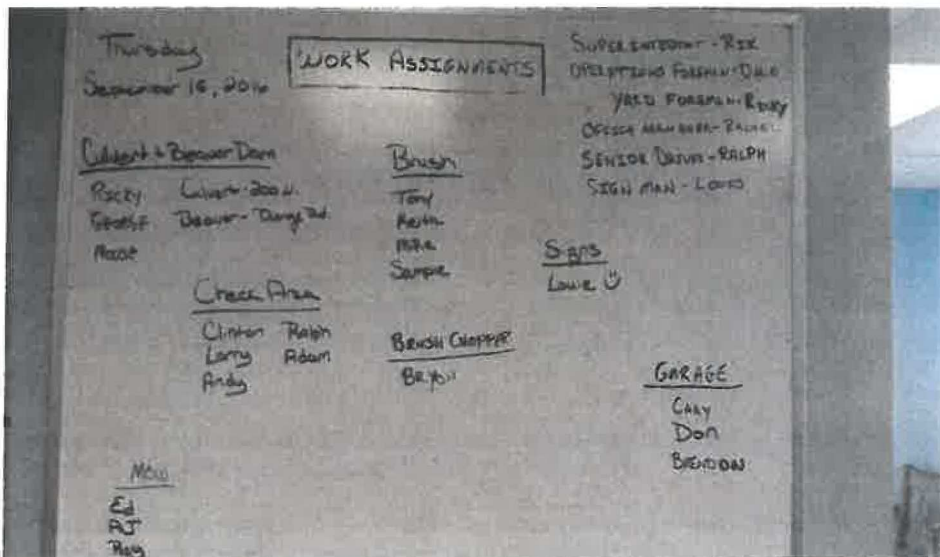 Thursday
September 15, 2016
WORK ASSIGNMENTS
SUPERINTENDENT - RIK
OPERATIONS FOREMAN - DALE
YARD FOREMAN - RICKY
OFFICE MANAGER - RACHEL
SENIOR DRIVER - RALPH
SIGN MAN - LOUIS
Culvert & Beaver Dam
Ricky Culvert - 200 N.
GEORGE Beaver -
Moose
Brush
Tony
Keith
Mike
Sample
Signs
Louie
Check Area
Clinton Ralph
Larry Adam
Andy
BRUSH CHOPPER
BRYON
GARAGE
CARY
Don
BRENDON
Mow
Ed
RJ
Ray